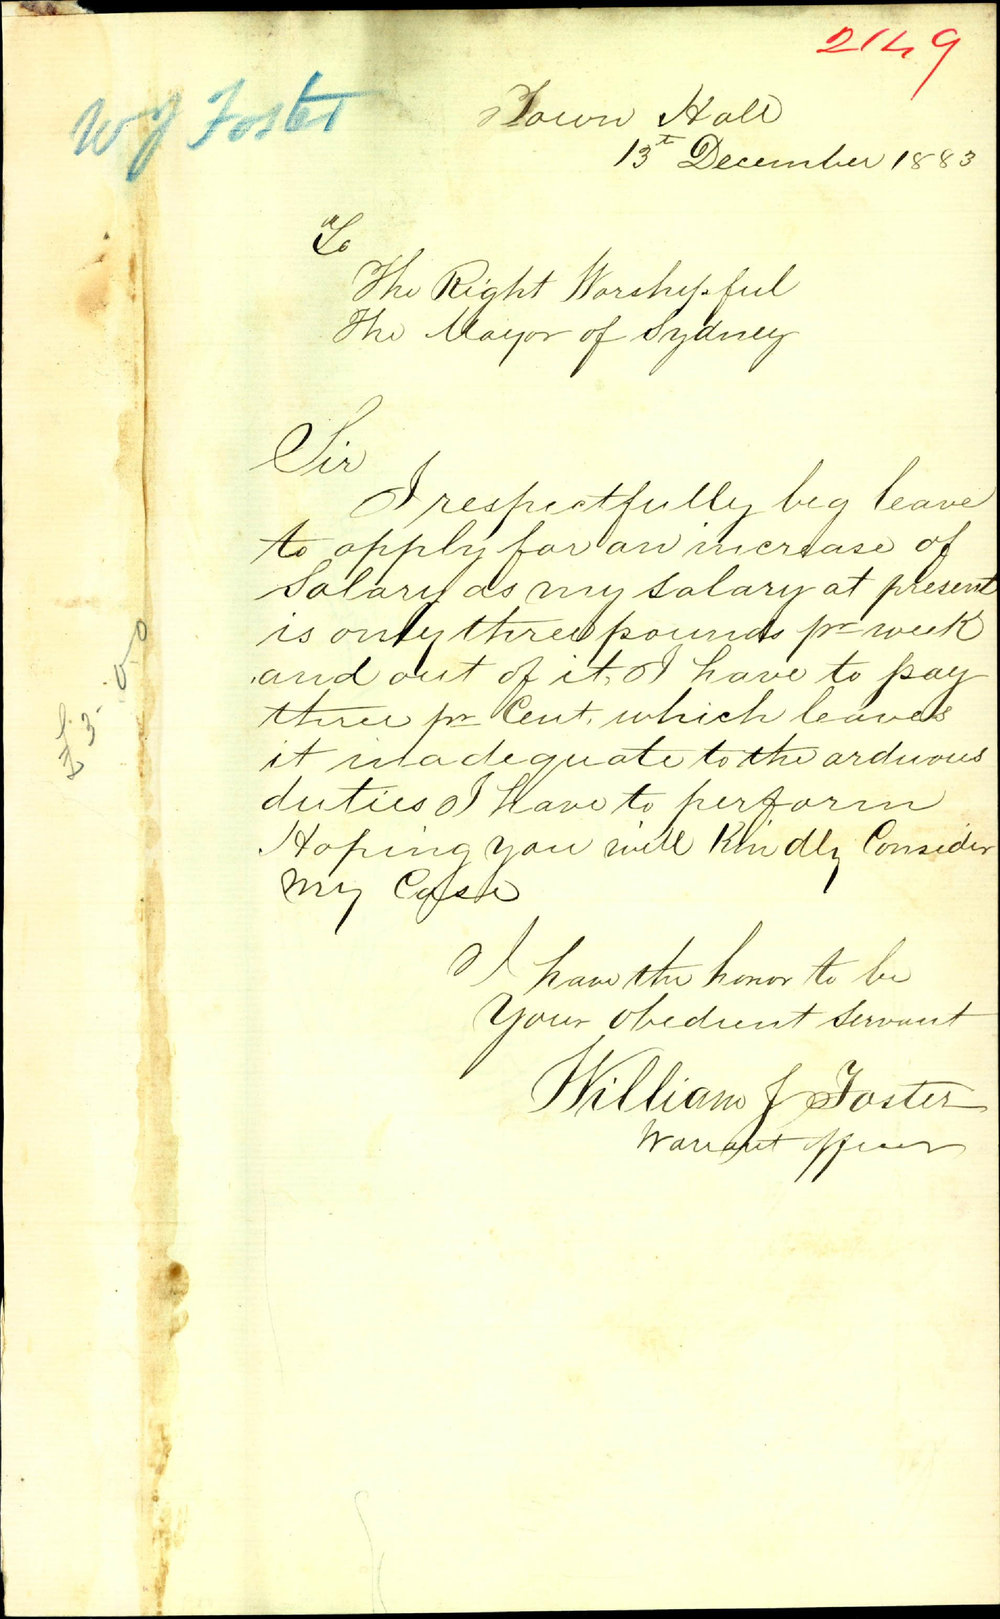 2149
W J Foster
Town Hall
13t December 1883
To
The Right Worshipful
The Mayor of Sydney
Sir
I respectfully beg leave
to apply for an increase of
Salary as my salary at present
is only three pounds pr week
and out of it, I have to pay
three pr Cent, which leaves
it inadequate to the arduous
duties I have to perform
Hoping you will Kindly Consider
my Case
I have the honor to be
Your obedient servant
William J Foster
Warrant officer
£3-0-0